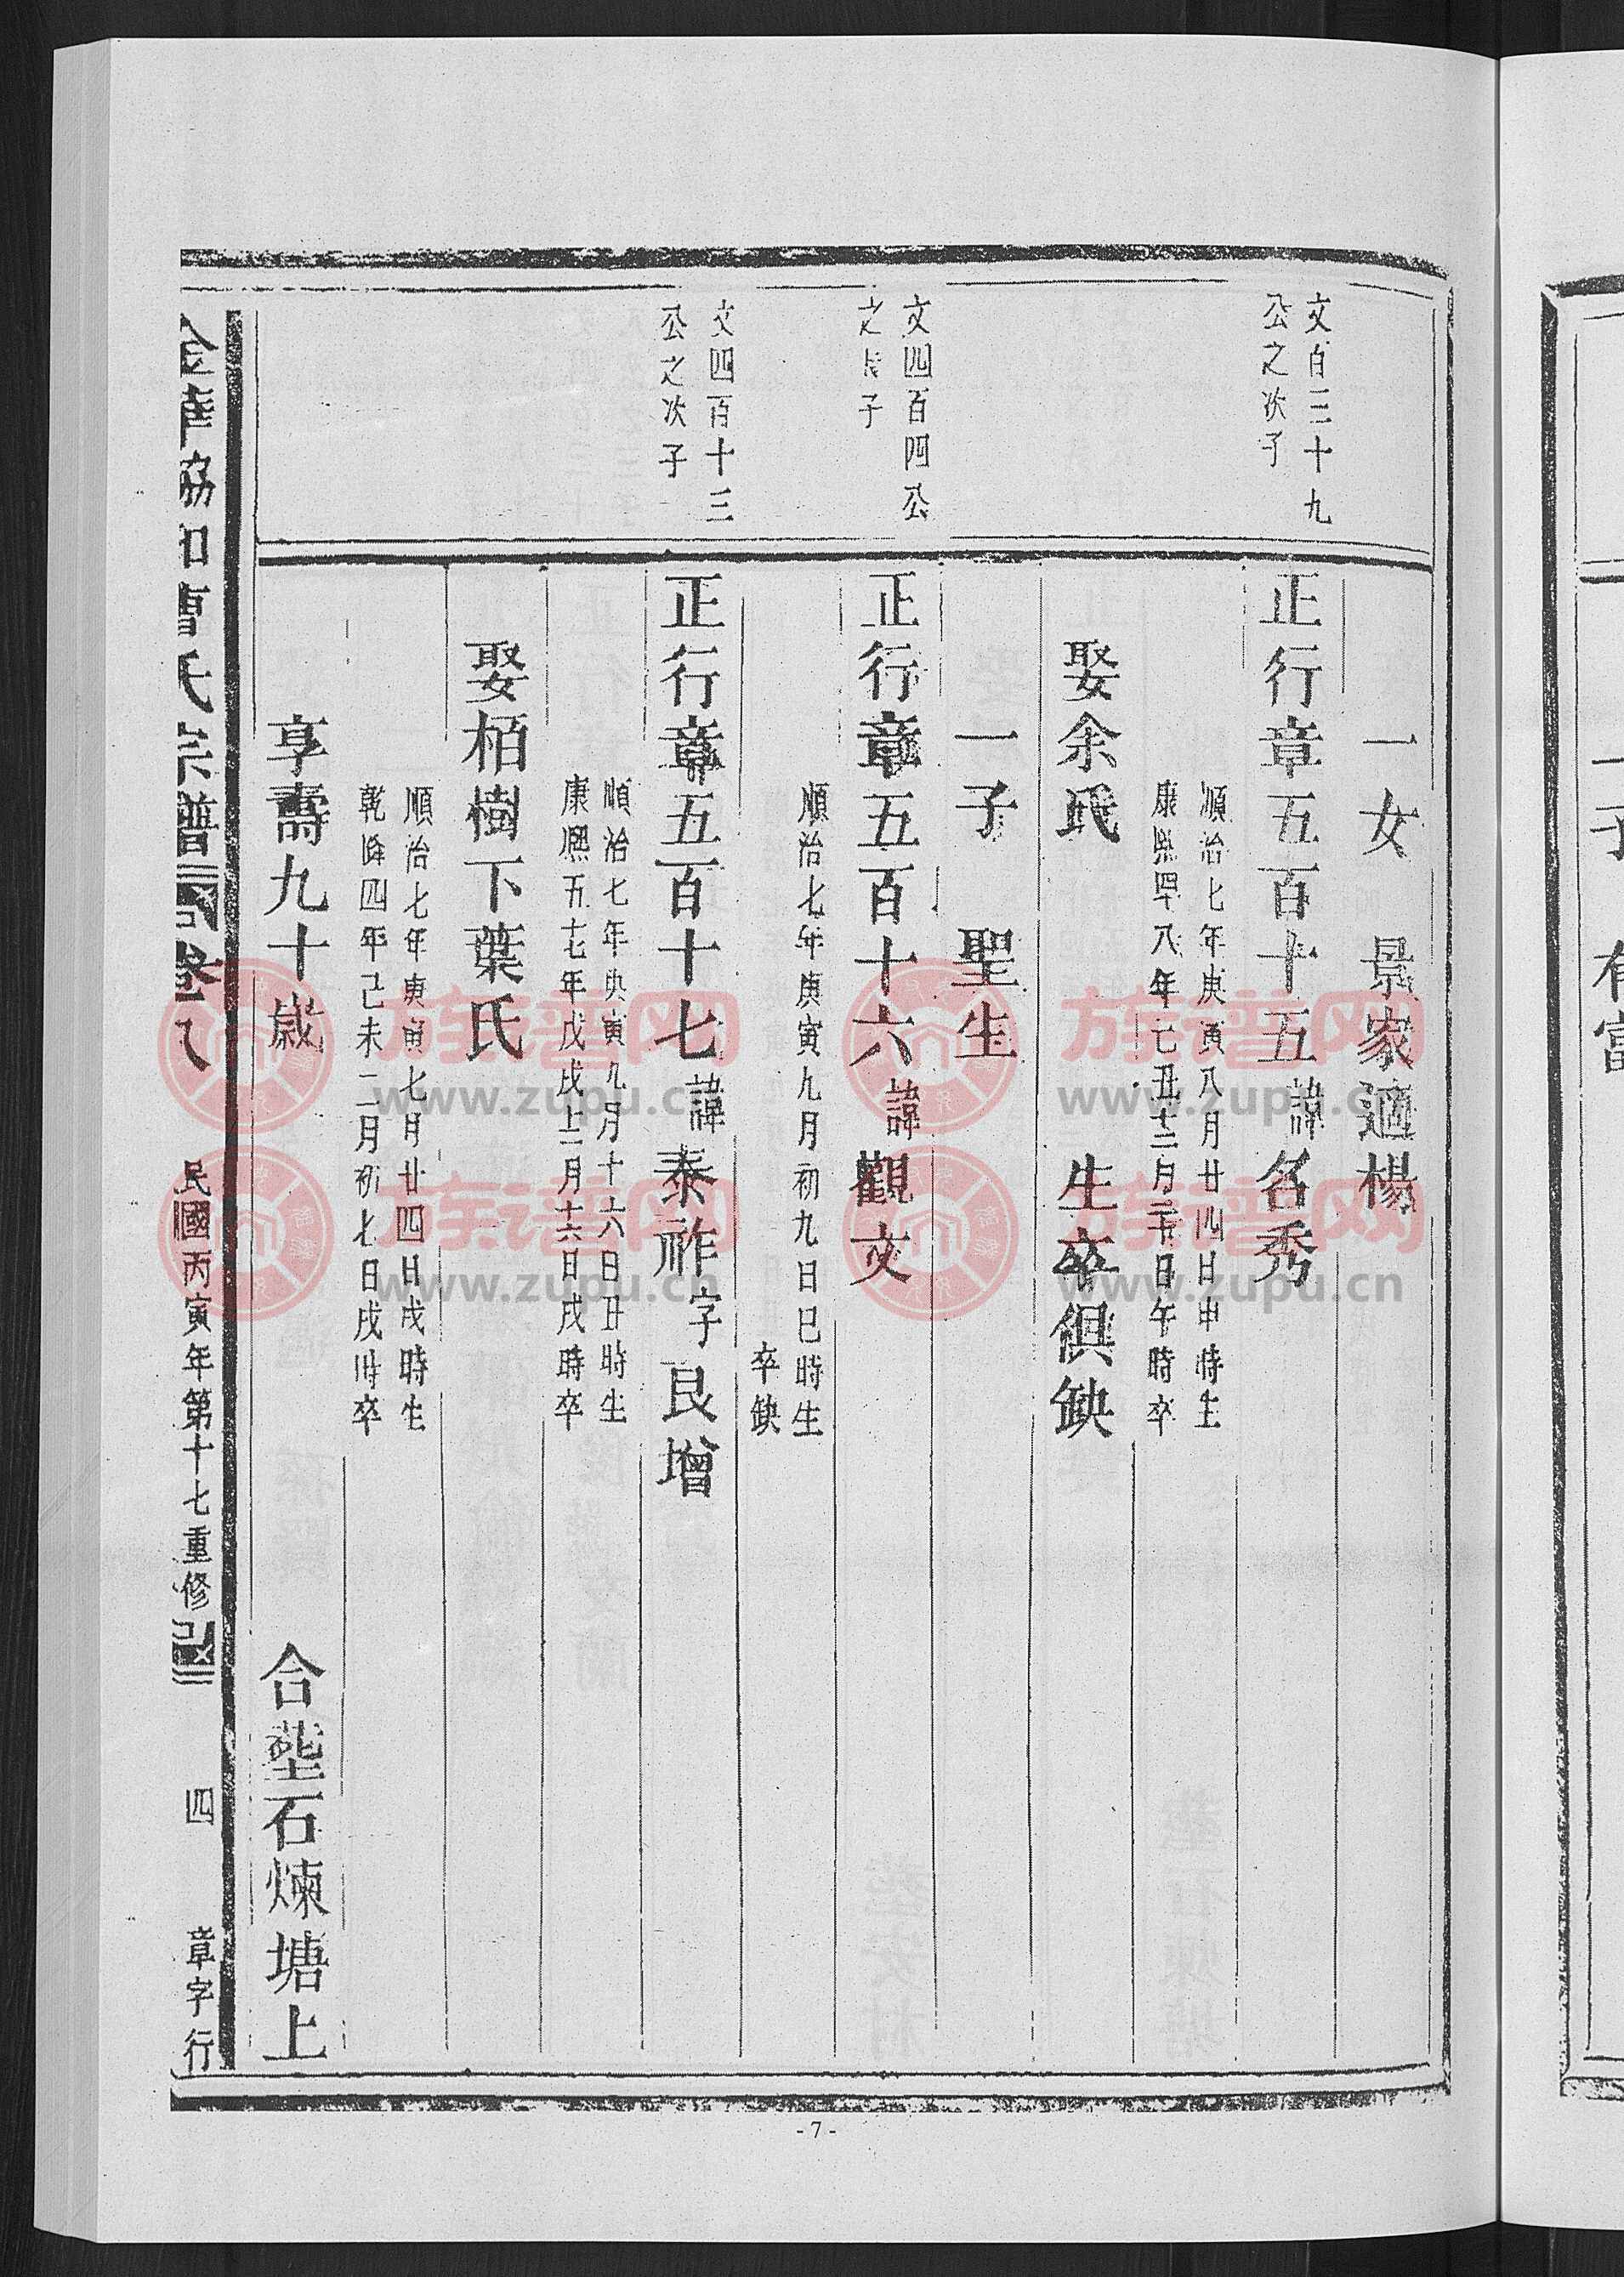 一子 有富
一女 景家適楊
文百三十九
公之次子
正行章五百十五諱名秀
順治七年庚寅八月廿四日申時生
康熙四十八年己丑十二月二十日午時卒
娶余氏 生卒俱缺
一子 聖生
文四百四公
之長子
正行章五百十六諱觀文
順治七年庚寅九月初九日巳時生
卒缺
文四百十三
公之次子
正行章五百十七諱泰祚字良增
順治七年庚寅九月十六日丑時生
康熙五十七年戊戌十二月十六日戌時卒
娶栢樹下葉氏
順治七年庚寅七月廿四日戌時生
乾隆四年己未二月初七日戌時卒
享壽九十歲 合塟石煉塘上
金華協和曹氏宗譜 卷八 民國丙寅年第十七重修 四 章字行
- 7 -
族谱网
www.zupu.cn
族谱网
www.zupu.cn
族谱网
www.zupu.cn
族谱网
www.zupu.cn